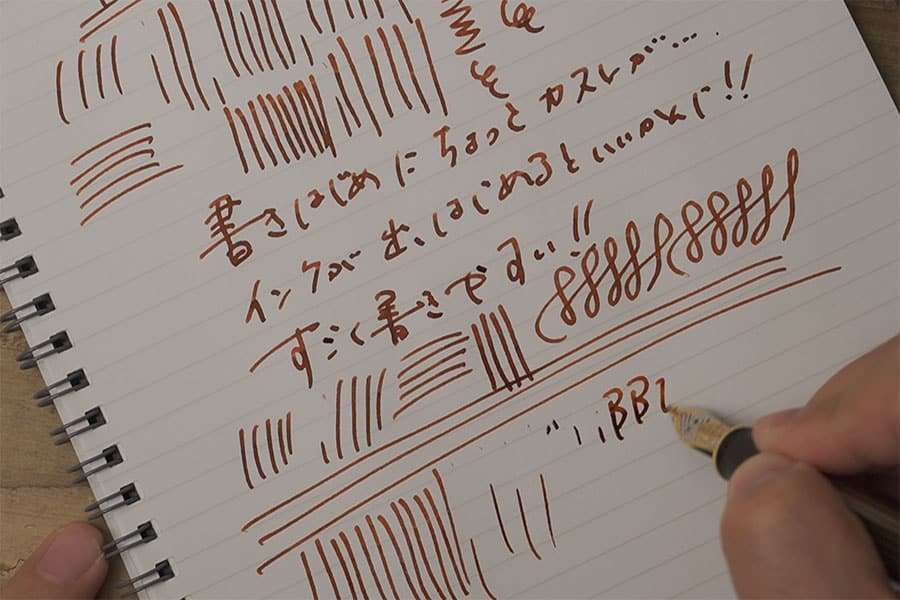 書きはじめにちょっとカスレが…．
インクが出はじめるといいかんじ!!
すごく書きやすい!!
BB